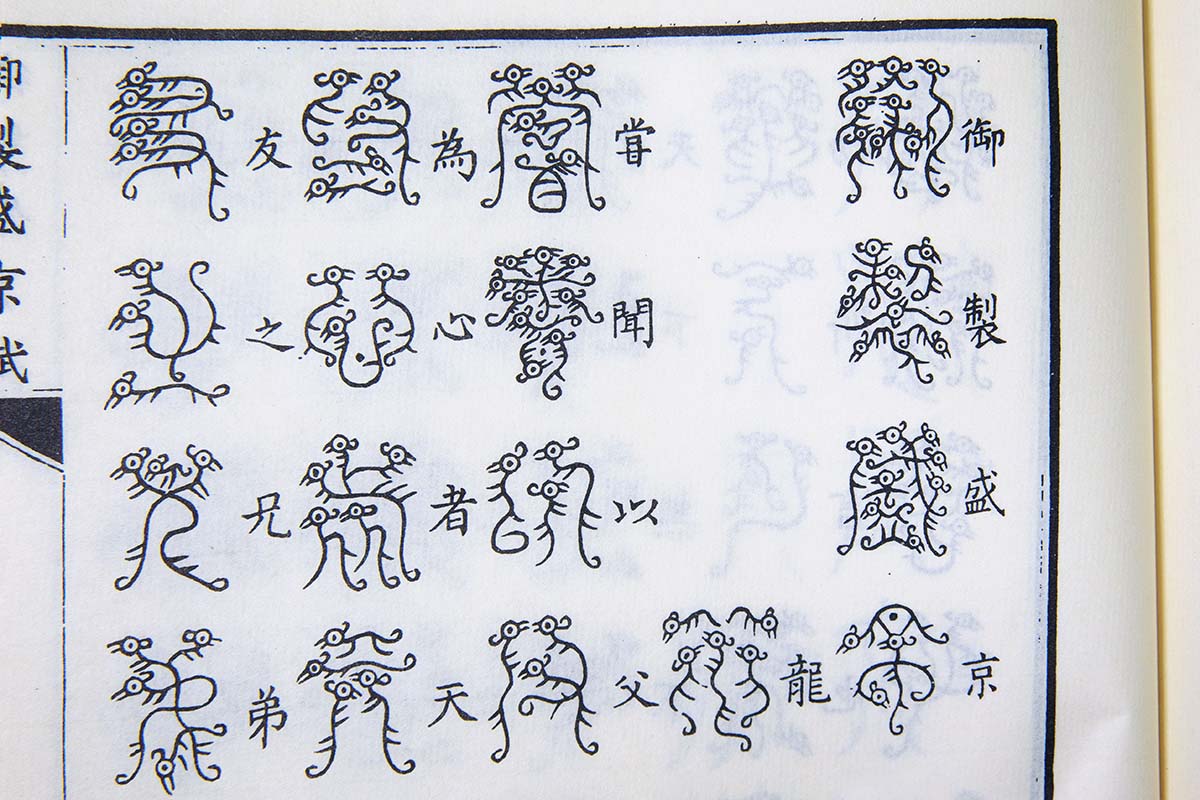 御製盛京
龍
嘗聞以父
為心者天
友之兄弟
御製盛京賦